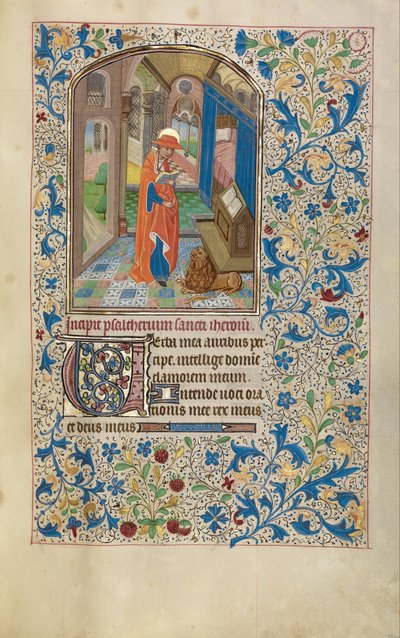 Incipit psalterium sancti iheronimi.
Verba mea auribus per
cipe. intellige domine
clamorem meum.
Intende uoci ora
tionis mee rex meus
et deus meus